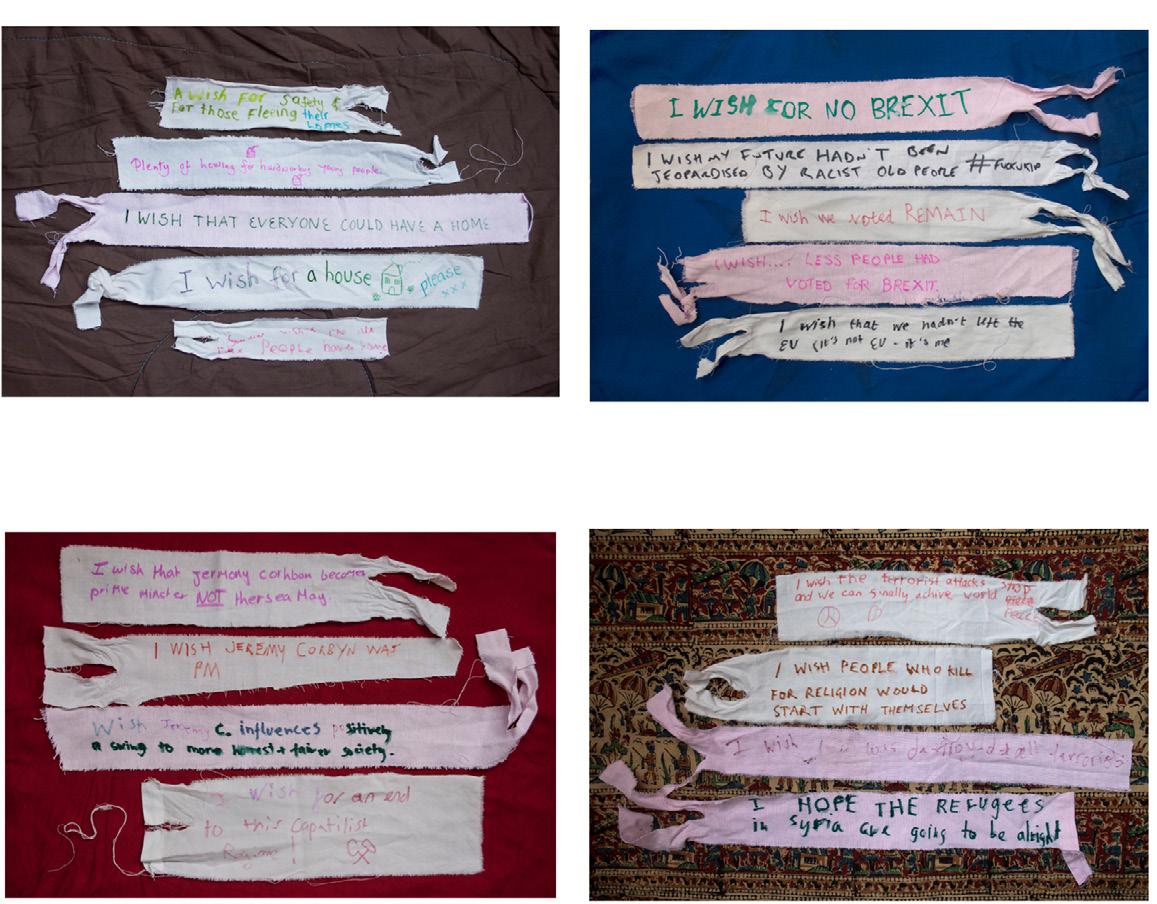 A wish for safety &
For those fleeing their
homes
Plenty of howing for hardworking young people.
I WISH THAT EVERYONE COULD HAVE A HOME
I wish for a house please
xxx
PEOPLE
I WISH FOR NO BREXIT
I WISH MY FUTURE HADN'T BEEN
JEOPARDISED BY RACIST OLD PEOPLE #FUCKUKIP
I wish we voted REMAIN
I WISH.... LESS PEOPLE HAD
VOTED FOR BREXIT.
I wish that we hadn't left the
EU (it's not EU - it's me
I wish that jermony corhban becomes
prime mincter NOT thersea May.
I WISH JEREMY CORBYN WAS
PM
Wish Jeremy C. influences positively
a swing to more honest + fairer society.
I wish for an end
to this Capatilist
Regime!
I wish the terrorist attacks stop
and we can finally achive world
peace
I WISH PEOPLE WHO KILL
FOR RELIGION WOULD
START WITH THEMSELVES
I wish
I HOPE THE REFUGEES
in Syria are going to be alright